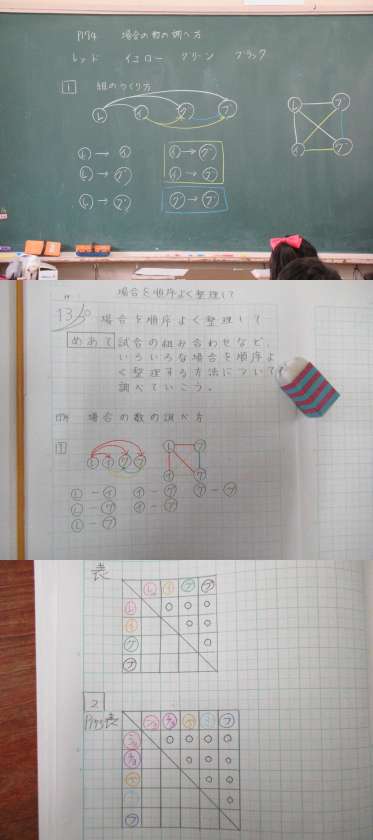 P174 場合の数の調べ方
レッド イエロー グリーン ブラック
1 組のつくり方
レ イ グ ブ
レ ブ
イ グ
レ → イ イ → グ
レ → グ イ → ブ
レ → ブ グ → ブ
場合を順序よく整理して
場合を順序よく整理して
めあて 試合の組み合わせなど、
いろいろな場合を順序よ
く整理する方法について
調べていこう。
P174 場合の数の調べ方
1
レ イ グ ブ
レ ブ
イ グ
レ - イ イ - グ グ - ブ
レ - グ イ - ブ
レ - ブ
表
レ イ グ ブ
レ ○ ○ ○
イ ○ ○
グ ○
ブ
2
表